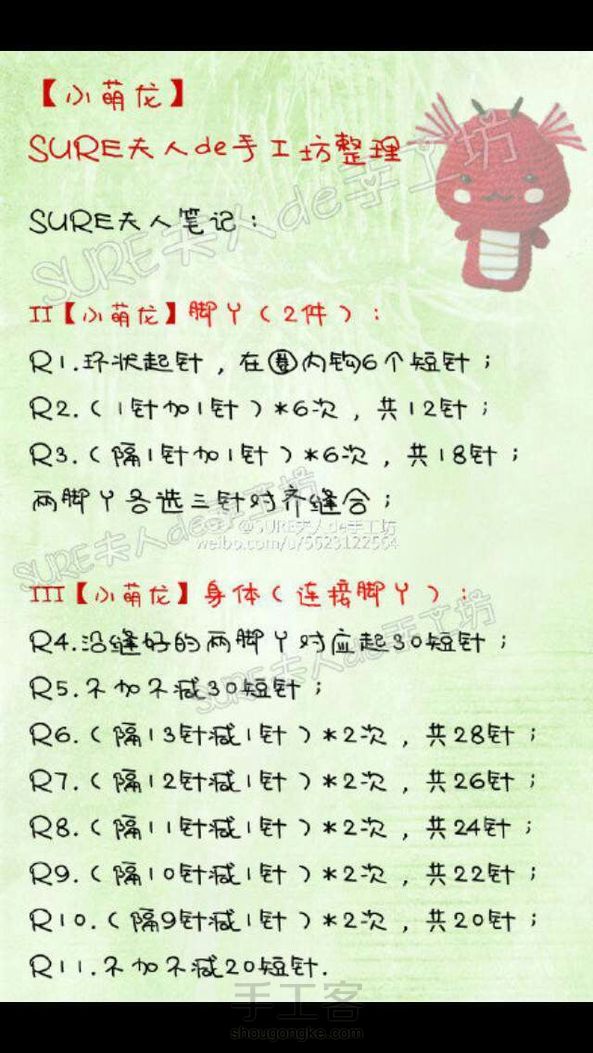 【小萌龙】
SURE夫人de手工坊整理
SURE夫人笔记：
II【小萌龙】脚丫（2件）：
R1.环状起针，在圈内钩6个短针；
R2.（1针加1针）*6次，共12针；
R3.（隔1针加1针）*6次，共18针；
两脚丫各选三针对齐缝合；
@SURE夫人de手工坊
weibo.com/u/5623122564
III【小萌龙】身体（连接脚丫）：
R4.沿缝好的两脚丫对应起30短针；
R5.不加不减30短针；
R6.（隔13针减1针）*2次，共28针；
R7.（隔12针减1针）*2次，共26针；
R8.（隔11针减1针）*2次，共24针；
R9.（隔10针减1针）*2次，共22针；
R10.（隔9针减1针）*2次，共20针；
R11.不加不减20短针.
SURE夫人de手工坊
SURE夫人de手工坊
SURE夫人de手工坊
手工客
shougongke.com